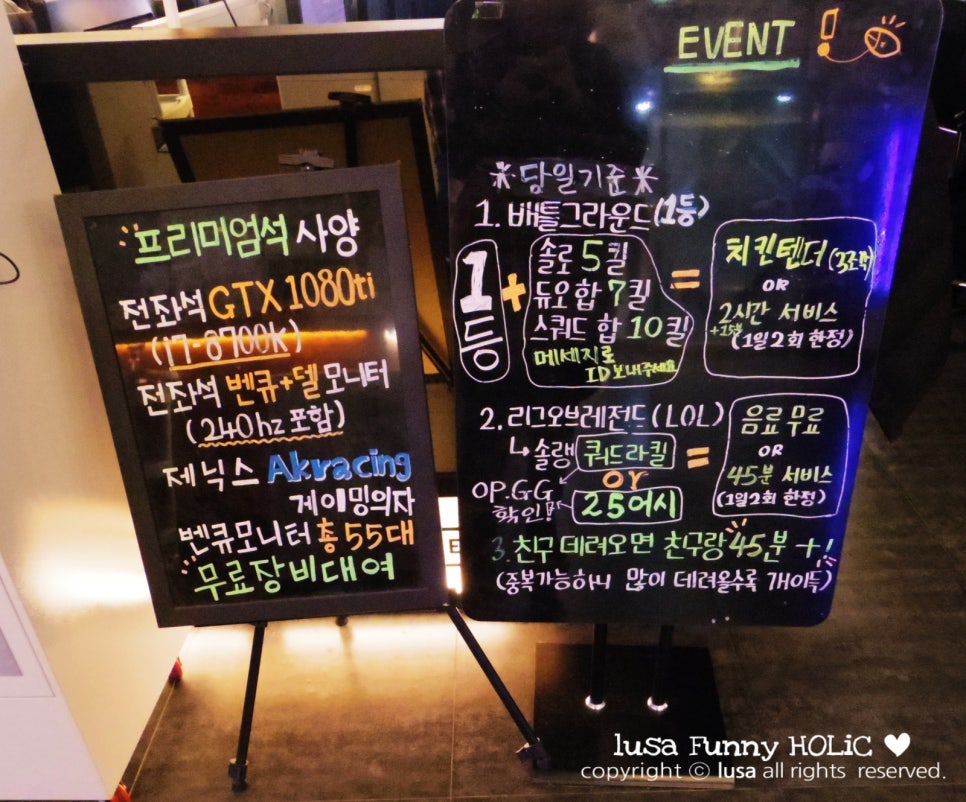 프리미엄석 사양
전좌석 GTX 1080ti
(i7-8700k)
전좌석 벤큐+델 모니터
(240hz 포함)
제닉스 Akracing
게이밍의자
벤큐모니터 총 55대
무료장비대여
EVENT !
*당일기준*
1. 배틀그라운드(1등)
1등 +
솔로 5킬
듀오 합 7킬
스쿼드 합 10킬
메세지로
ID 보내주세요
=
치킨텐더 (3조각)
OR
2시간 서비스
+15분 (1일 2회 한정)
2. 리그오브레전드 (LOL)
↳ 솔랭 쿼드라킬
or
OP.GG
확인! 25어시
=
음료 무료
OR
45분 서비스
(1일 2회 한정)
3. 친구 데려오면 친구랑 45분 +!
(중복가능하니 많이 데려올수록 개이득)
lusa Funny HOLiC ♥
copyright ⓒ lusa all rights reserved.